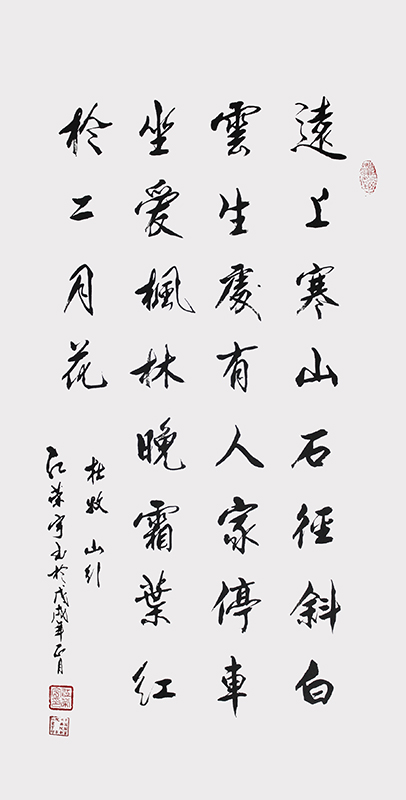 遠上寒山石徑斜白
雲生處有人家停車
坐愛楓林晚霜葉紅
於二月花
杜牧 山行
江荣宇書於戊戌年正月